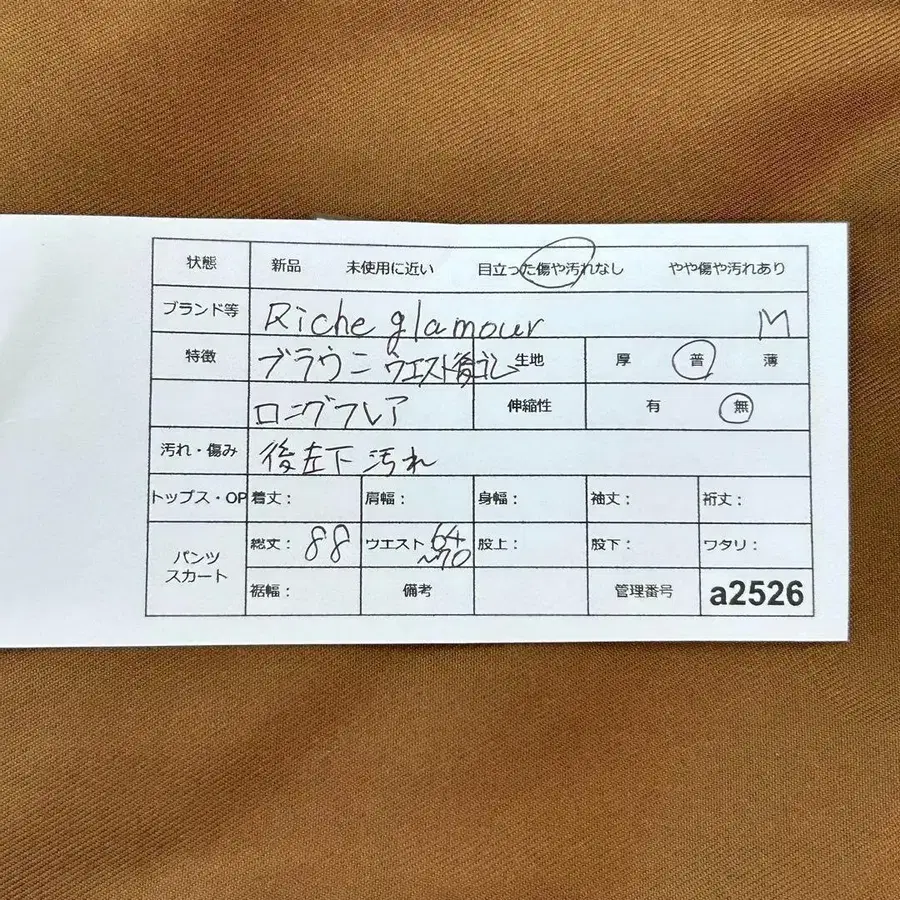 状態 新品 未使用に近い 目立った傷や汚れなし やや傷や汚れあり
ブランド等 Riche glamour M
特徴 ブラウニ ウエスト後ゴム 生地 厚 普 薄
ロングフレア 伸縮性 有 無
汚れ・傷み 後左下 汚れ
トップス・OP 着丈： 肩幅： 身幅： 袖丈： 裄丈：
パンツ スカート 総丈： 88 ウエスト 64 ~70 股上： 股下： ワタリ：
裾幅： 備考 管理番号 a2526